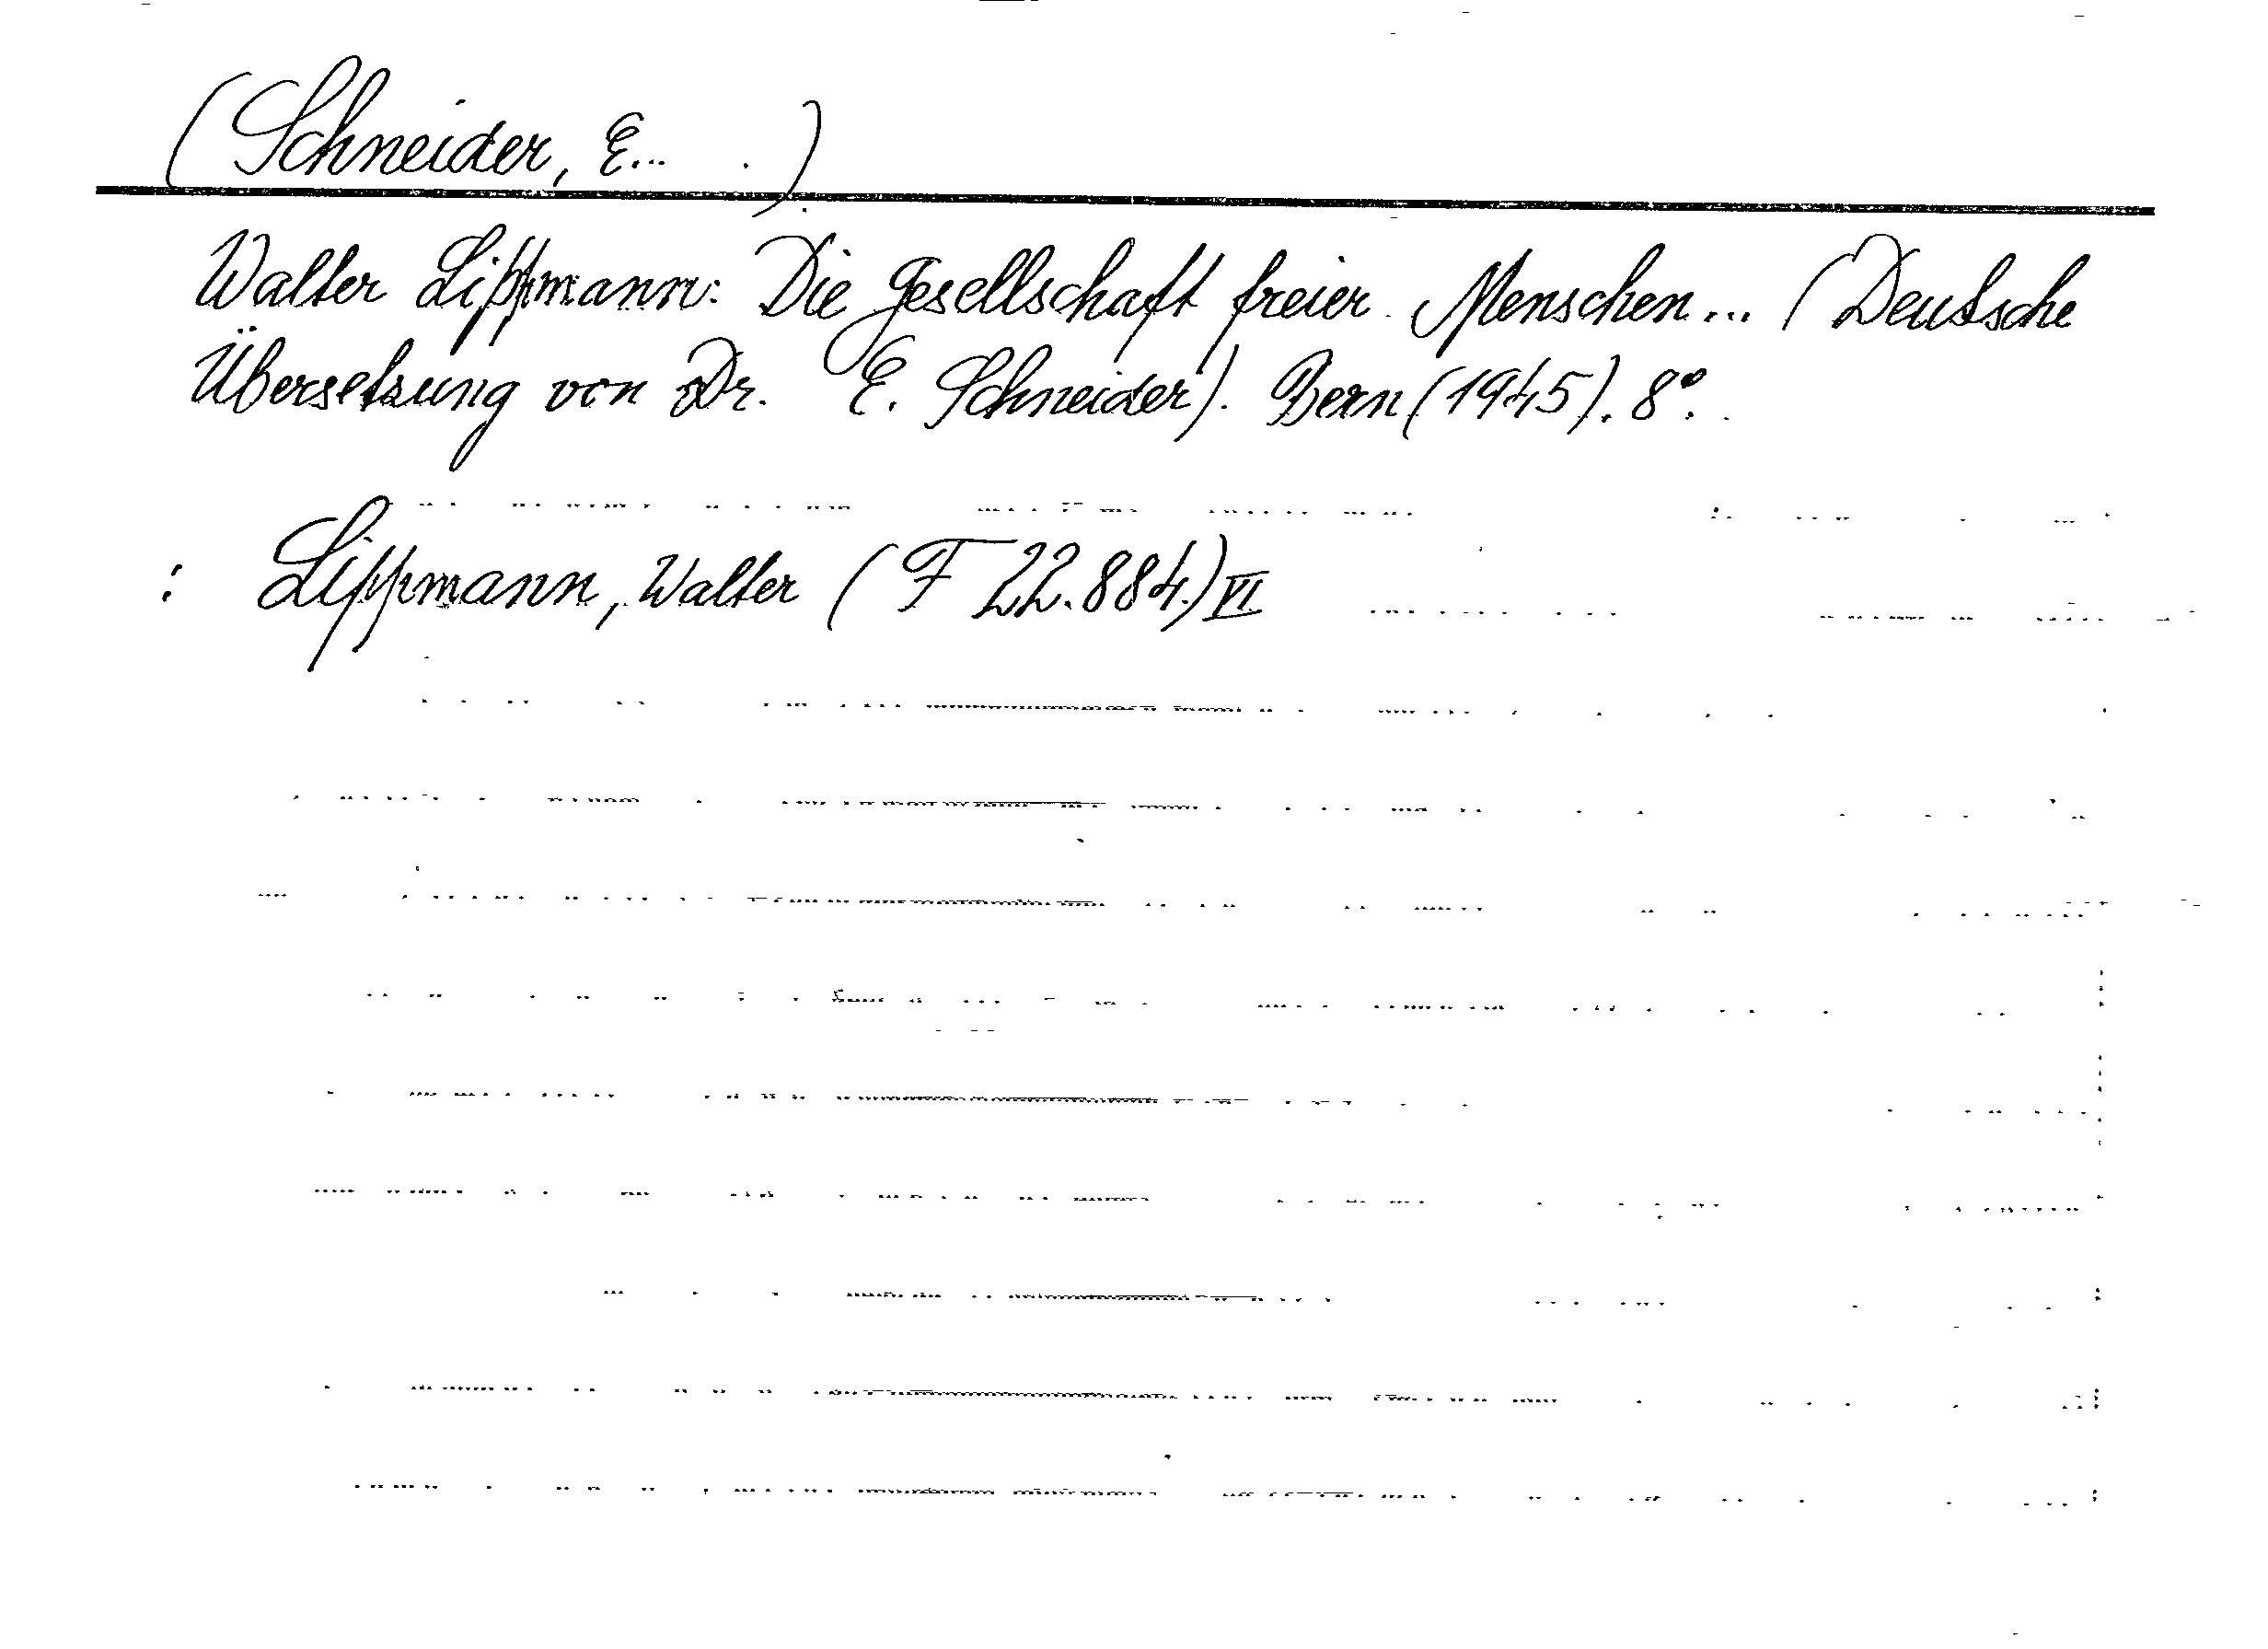 (Schneider, E... .).
Walter Lippmann: Die Gesellschaft freier Menschen... (Deutsche
Übersetzung von Dr. E. Schneider). Bern (1945). 8°.
: Lippmann, Walter (F 22.884.) VI